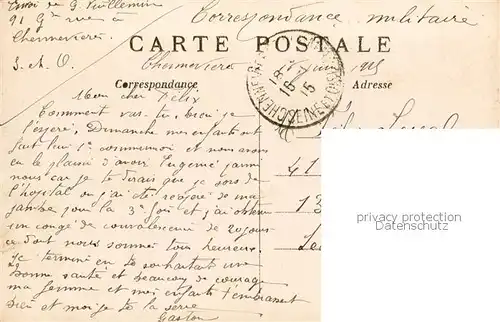 Envoi de G. Vuillemin
91 Gde rue à
Chennevières
S. et O.
Correspondance militaire
CARTE POSTALE
Chennevières juin 1915
Correspondance
Adresse
Mon cher Félix
Comment vas-tu, bien je
l'espère, Dimanche mes enfants ont
fait leur 1e communion et nous avons
eu le plaisir d'avoir Eugenie parmi
nous car je te dirais que je sors de
l'hôpital ou j'ai été réopéré de ma
jambe pour la 3e fois et j'ai obtenu
un congé de convalescence de 20 jours
ce dont nous sommes tous heureux.
Je termine en te souhaitant une
bonne santé et beaucoup de courage
ma femme et mes enfants t'embrassent
bien et moi je te la serre
Gaston
41
13
privacy protection
Datenschutz